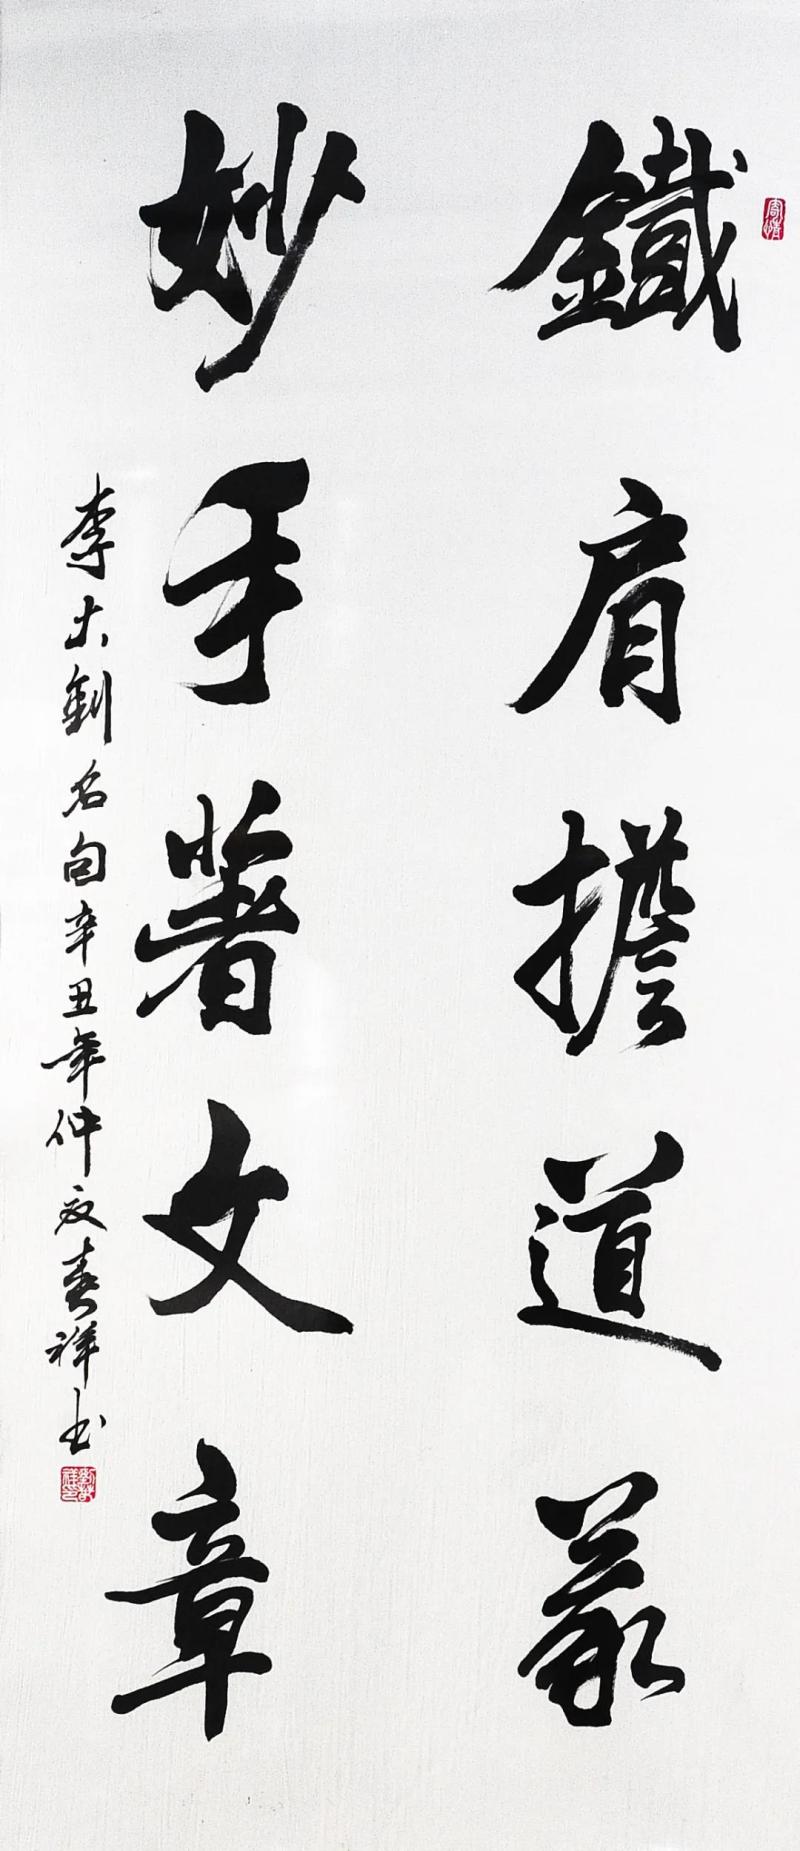 鐵肩擔道義
妙手著文章
李大釗名句辛丑年仲夏春祥书